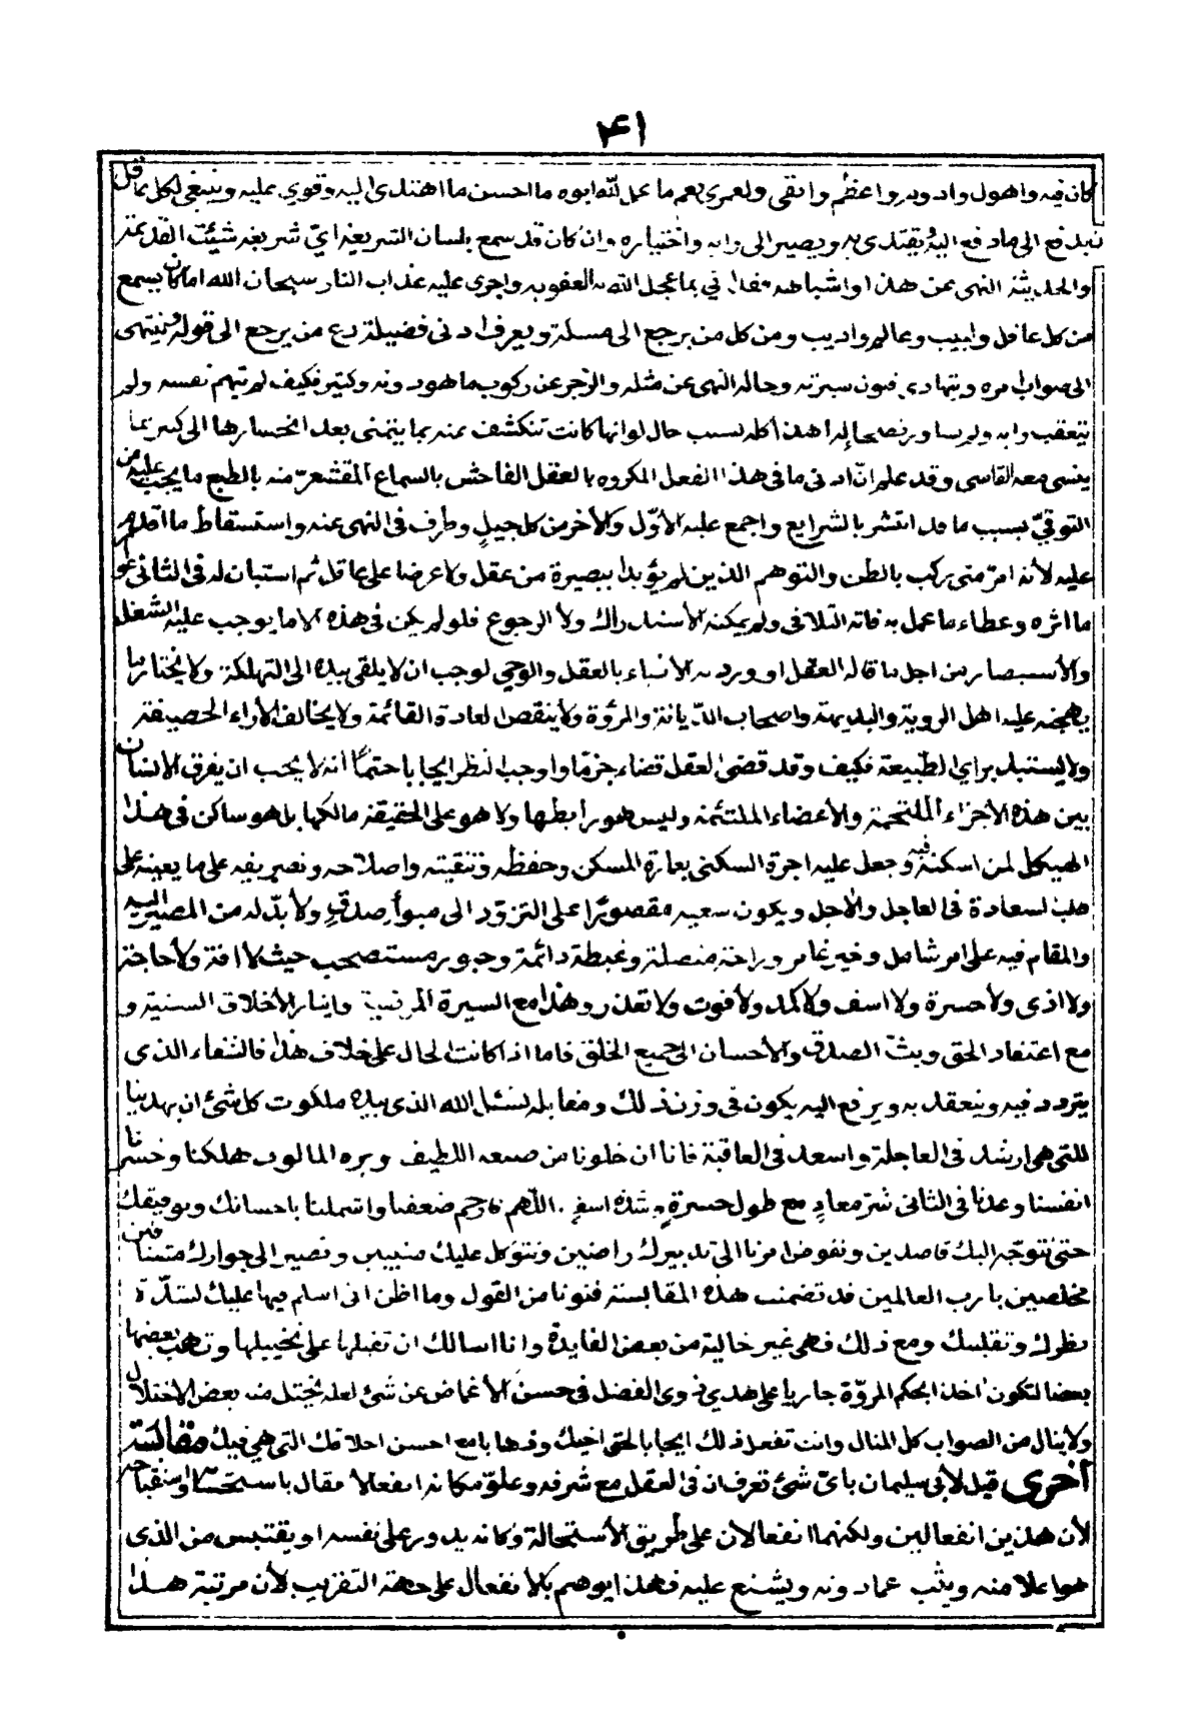 ٤١
كان فيه واهول وادوبه واعظم واتقى ولعمرى نعم ما عمل لله ابوه ما احسن ما اهتدى اليه وقوي عليه وينبغي لكل عاقل
الى ما دفع اليه يقتدى به ويصير الى رايه واختياره وان كان قد سمع بلسان الشريعة اي شريعة شئت القديمة
والحديثة النهى عن هذا واشباهه فى بما عجل الله به العقوبه واجرى عليه عذاب النار سبحان الله اما كان يسمع
من كل عاقل ولبيب وعالم واديب ومن كل من يرجع الى مسكة ويعرف ادنى فضيلة من يرجع الى قوله وينتهى
الى صواب امره وحاله النهى عن مثله والزجر عن ركوب ما هو دونه وكثير فكيف لم يتهم نفسه ولم
يتعقب رايه ولم هذا كله بسبب حال لو انها كانت تنكشف عنه بما يتمنى بعد انحسارها الى كبير بما
ينسى معه القاسى وقد علم ان ادنى ما فى هذا الفعل المكروه بالعقل الفاحش بالسماع المقشعر منه بالطبع ما يجب عليه من
التوقي بسبب ما قد انتشر بالشرايع واجمع عليه الاول والاخر من كل جيل وطرف فى النهى عنه واستسقاط ما اقدم
عليه لأنه امر متى ركب بالظن والتوهم الذين لم يؤيدا ببصيرة من عقل ولا عرضا على عاقل ثم استبان له فى الثانى
ما اثره وعطاء ما عمل به فاته التلافى ولم يمكنه الاستدراك ولا الرجوع فلو لم يكن فى هذه الا ما يوجب عليه الشغل
والأستبصار من اجل ما قاله العقل او ورد به الأنبياء بالعقل والوحي لوجب ان لا يلقى بيده الى التهلكة ولا يختار ما
يهجنه عليه اهل الروية والبديهة واصحاب الديانة والمروة ولا ينقض العادة القائمة ولا يخالف الأراء الحصيفة
ولا يستبد براي الطبيعة فكيف وقد قضى العقل قضاء جزما واوجب النظر ايجابا حتما انه لا يجب ان يفرق الانسان
بين هذه الأجزاء الملتحمة والأعضاء الملتئمة وليس هو رابطها ولا هو على الحقيقة مالكها بل هو ساكن فى هذا
الهيكل لمن اسكنه فيه وجعل عليه اجرة السكنى بعمارة المسكن وحفظه وتنقيته واصلاحه وتصريفه على ما يعينه على
طلب السعادة فى العاجل والأجل ويكون سعيه مقصورا على التزود الى مبوأ صدق ولا بد له من المصير اليه
والمقام فيه على امر شامل وخير غامر وراحة متصلة وغبطة دائمة وحبور مستصحب حيث لا افة ولا حاجة
ولا اذى ولا حسرة ولا اسف ولا كمد ولا فوت ولا تعذر وهذا مع السيرة المرضية وايثار الأخلاق السنية و
مع اعتقاد الحق وبث الصدق والأحسان الى جميع الخلق فاما اذا كانت الحال على خلاف هذا فالشقاء الذى
يتردد فيه وينعقد به ويرفع اليه يكون فى وزن ذلك ومقابله نسئل الله الذى بيده ملكوت كل شئ ان يهدينا
للتى هى ارشد فى العاجلة واسعد فى العاقبة فانا ان خلونا من صنعه اللطيف وبره المالوف هلكنا وخسرنا
انفسنا وعدنا فى الثانى شر معاد مع طول حسرة وشدة اسف . اللهم فارحم ضعفنا واشملنا باحسانك وبوفيقك
حتى نتوجه اليك قاصدين ونفوض امرنا الى تدبيرك راضين ونتوكل عليك منيبين ونصير الى جوارك
مخلصين يا رب العالمين قد تضمنت هذه المقابسة فنونا من القول وما اظن انى اسلم فيها عليك لشدة
نظرك وتفليك ومع ذلك فهى غير خالية من بعض الفايدة وانا اسالك ان تقبلها على تخييلها وتهب بعضها
بعضا لتكون اخذا بحكم المروة جاريا على هدي ذوى الفضل فى حسن الأغماض عن شئ لعله يختل منه بعض الاختلال
ولا ينال من الصواب كل المنال وانت تفعل ذلك ايجابا لحق اخيك وذهابا مع احسن اخلاقك التى هي فيك مقابسة
أخرى قيل لأبى سليمان باى شئ تعرف ان فى العقل مع شرفه وعلو مكانه انفعالا فقال باستحسانه واستقباحه
لأن هذين انفعالين ولكنهما انفعالان على طريق الأستحالة وكانه يدور على نفسه او يقتبس من الذى
هو اعلا منه ويثب عما دونه ويشنع عليه فهذا يوهم كالانفعال على جهة التقريب لأن مرتبة هذا